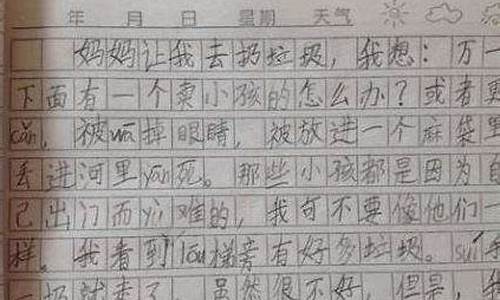 年 月 日 星期 天气
妈妈让我去扔垃圾，我想：万一
下面有一个卖小孩的怎么办？或者更
cǎn，被wā掉眼睛，被放进一个麻袋里
丢进河里yān死。那些小孩都是因为自
己出门而yù难的，我可不要像他们一
样。我看到lóu梯旁有好多垃圾。suí手
一扔就走了 虽然很不好，但是，我